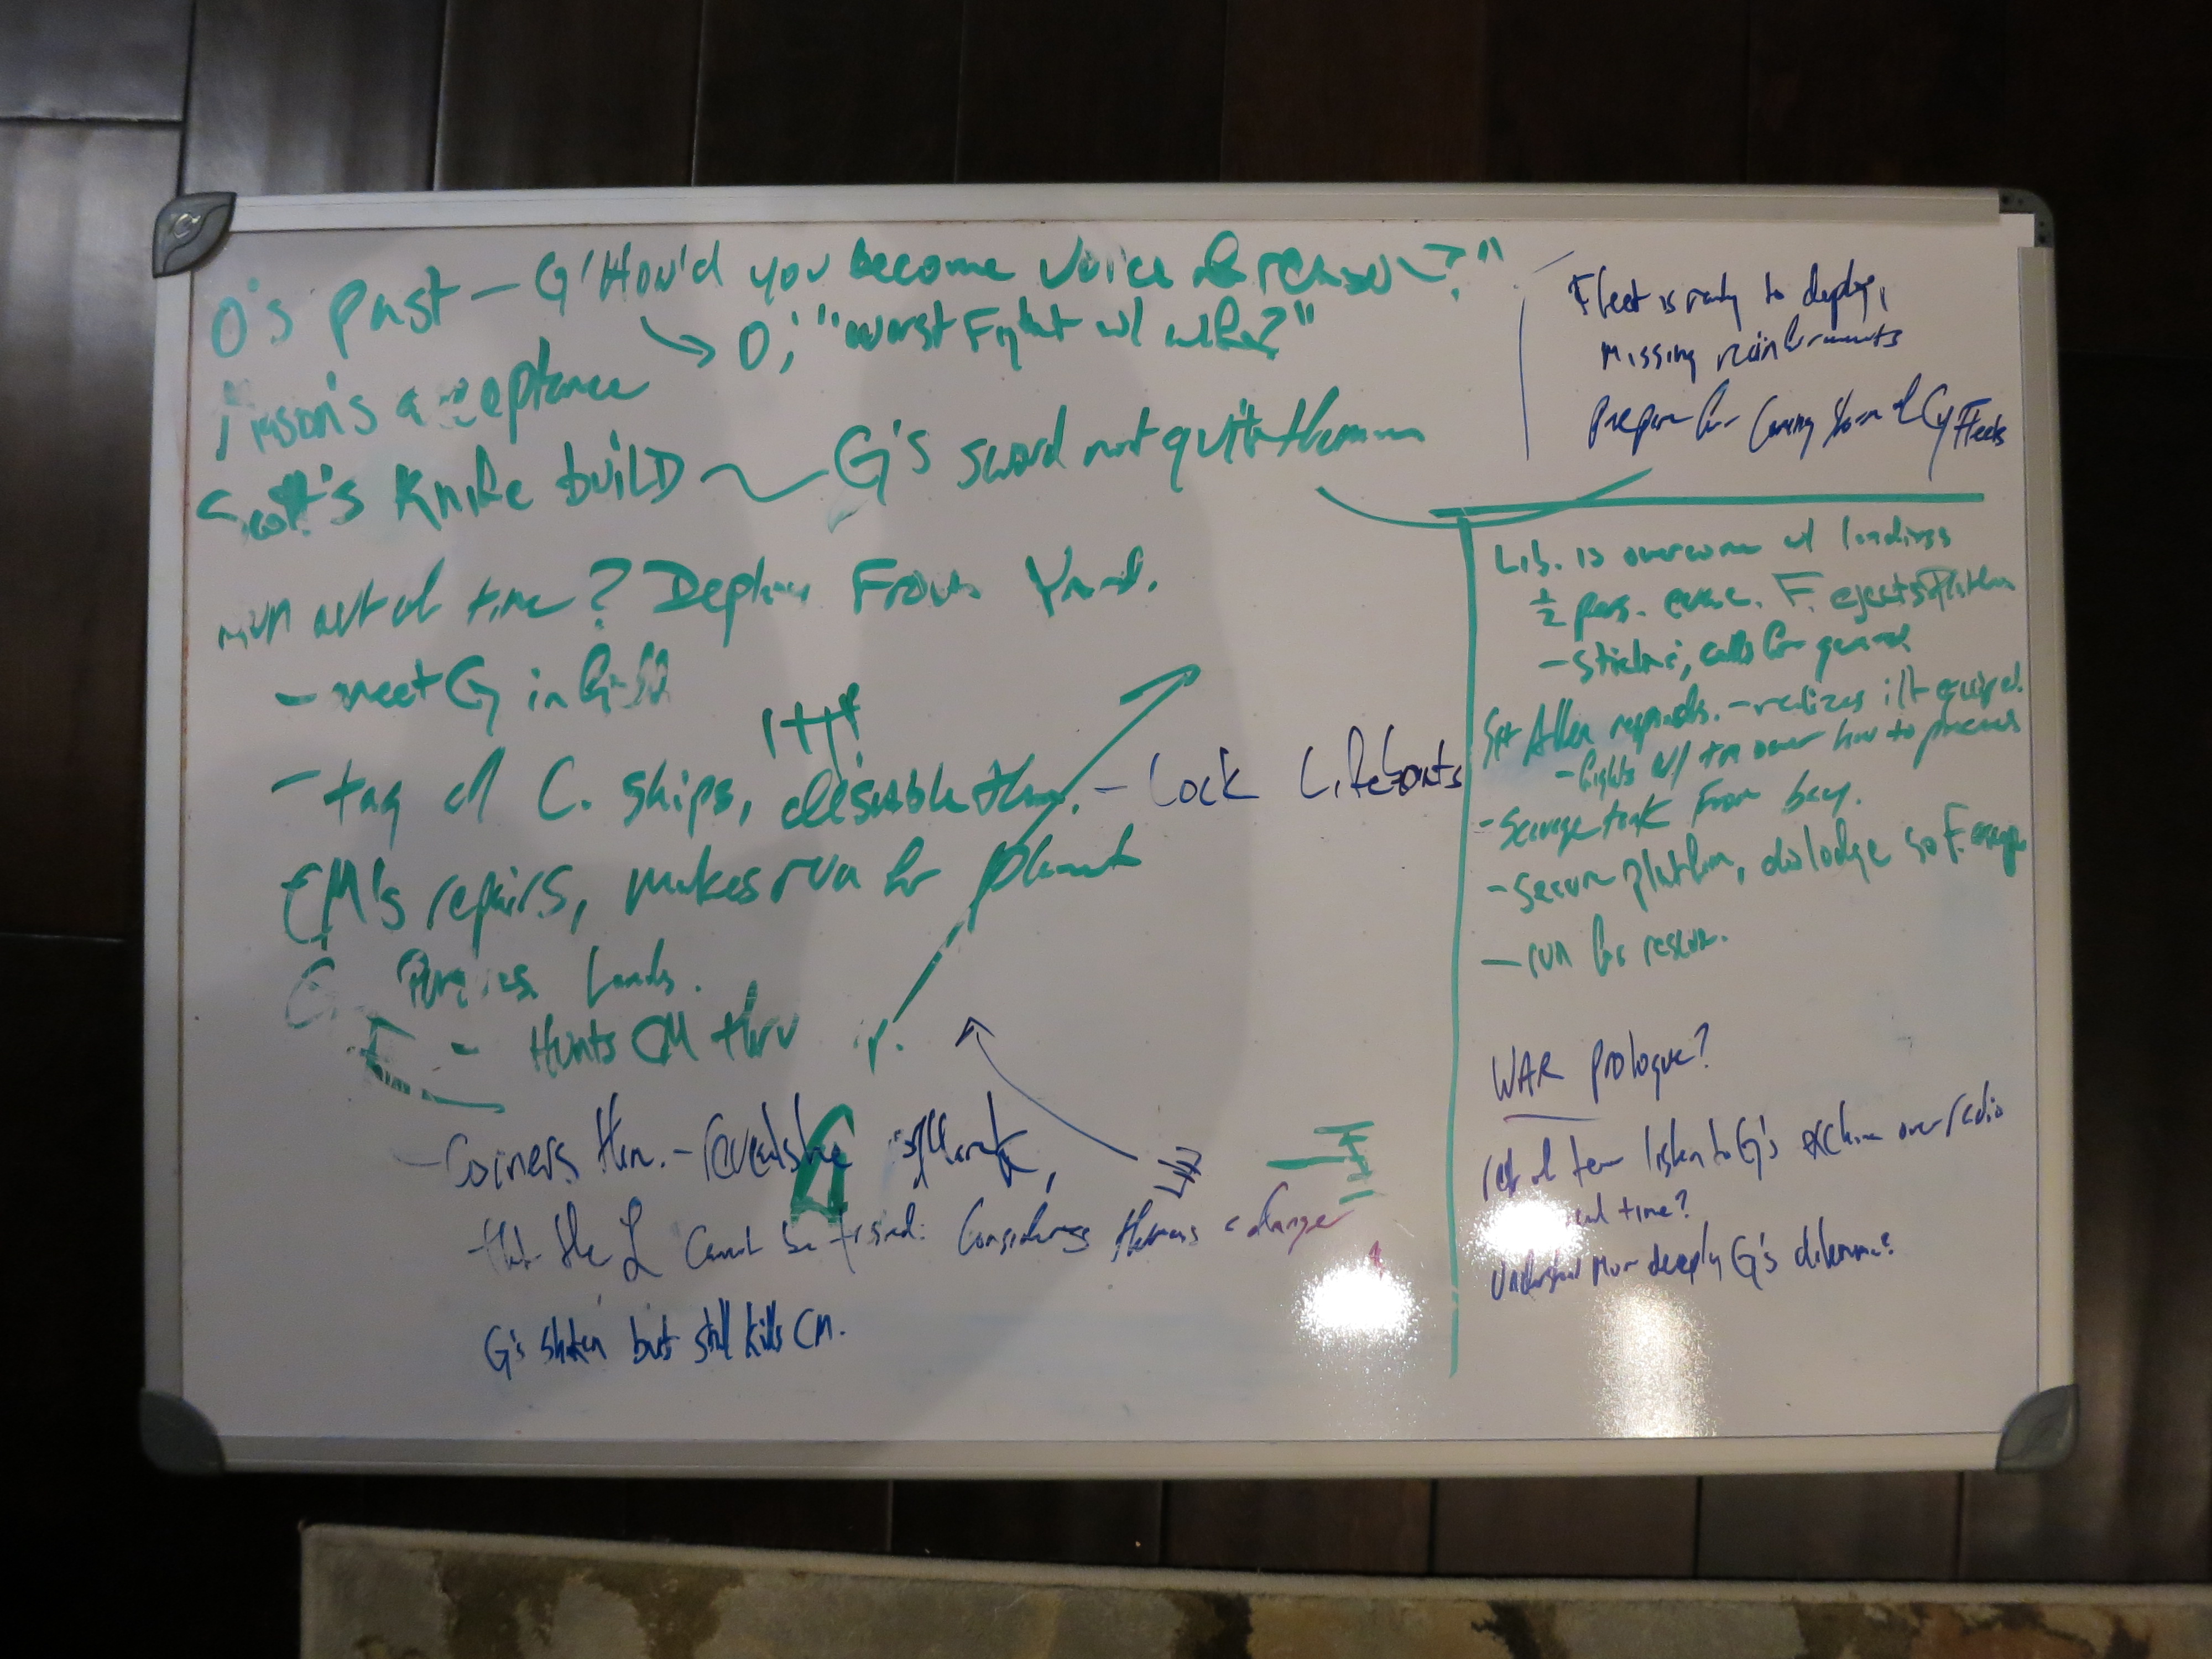 O's past - G "How'd you become voice of reason?"
→ O; "worst Fight w/ wife?"
's acceptance
Scott's Knife buiLD ~ G's sword not quite the same
run out of time? Deploy From Yard.
- meet G in
- tag of C. ships, disable them. - Lock Lifeboats
CM's repairs, makes run for planet
G. Lands.
- Hunts CM thru
- Corners him. - reveals
that the L cannot be trusted: Considers a danger
G's shaken but still kills CM.
Fleet is ready to deploy,
Missing reinforcements
prepare for coming storm of Cy Fleets
Lib. is overcome w/ landings
1/2 pers. evac. F. ejects Platform
- calls for guard
Sgt Allen responds. - realizes ill equiped.
- fights w/ tm over how to proceed
- Scavenge tank From bay.
- Secure platform, dislodge so F. escape
- run for rescue.
WAR prologue?
rest of team listen to G's over radio
time?
Understand More deeply G's dilemma?